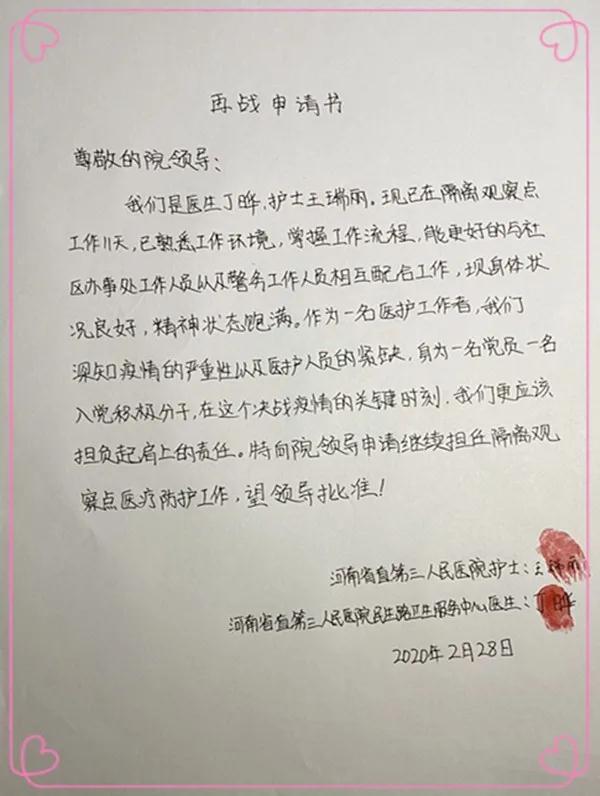 再战申请书
尊敬的院领导:
我们是医生丁晔,护士王瑞丽。现已在隔离观察点
工作11天,已熟悉工作环境,掌握工作流程,能更好的与社
区办事处工作人员以及警务工作人员相互配合工作,现身体状
况良好,精神状态饱满。作为一名医护工作者,我们
深知疫情的严重性以及医护人员的紧缺,身为一名党员一名
入党积极分子,在这个决战疫情的关键时刻,我们更应该
担负起肩上的责任。特向院领导申请继续担任隔离观
察点医疗防护工作,望领导批准!
河南省直第三人民医院护士:王瑞丽
河南省直第三人民医院民生路卫生服务中心医生:丁晔
2020年2月28日